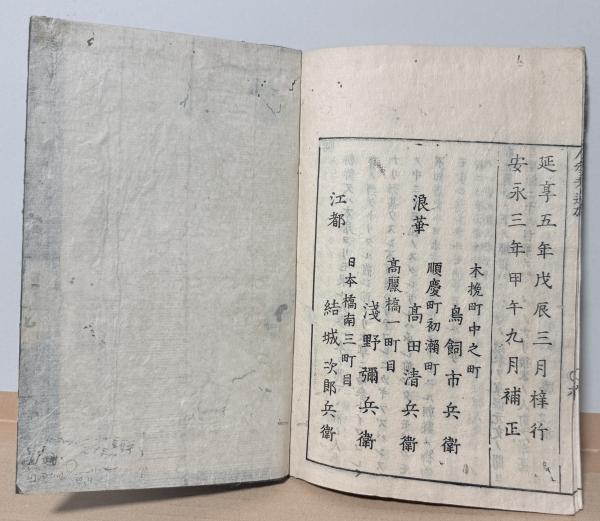 延享五年戊辰三月梓行
安永三年甲午九月補正
木挽町中之町
鳥飼市兵衛
順慶町初瀬町
浪華
高田清兵衛
高麗橋一町目
淺野彌兵衛
江都
日本橋南三町目
結城次郎兵衛